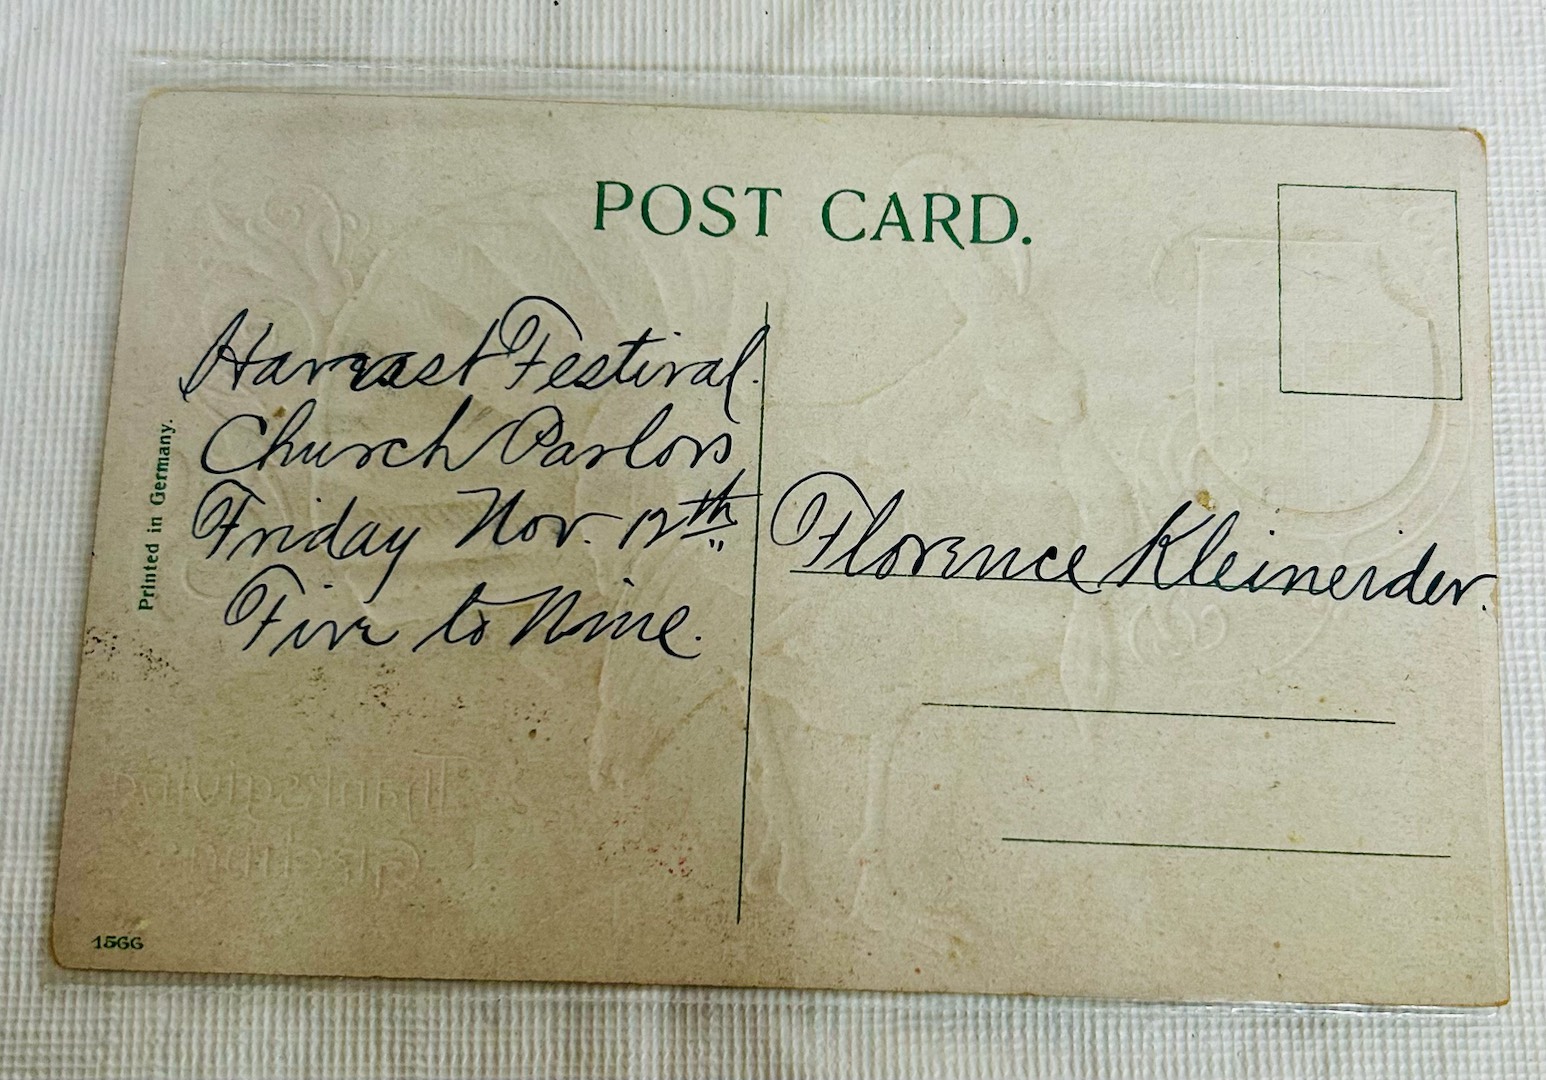 POST CARD.
Printed in Germany.
Harvest Festival.
Church Parlors
Friday Nov. 12th
Five to Nine.
Florence Kleineider.
Thanksgiving
Greetings
1566